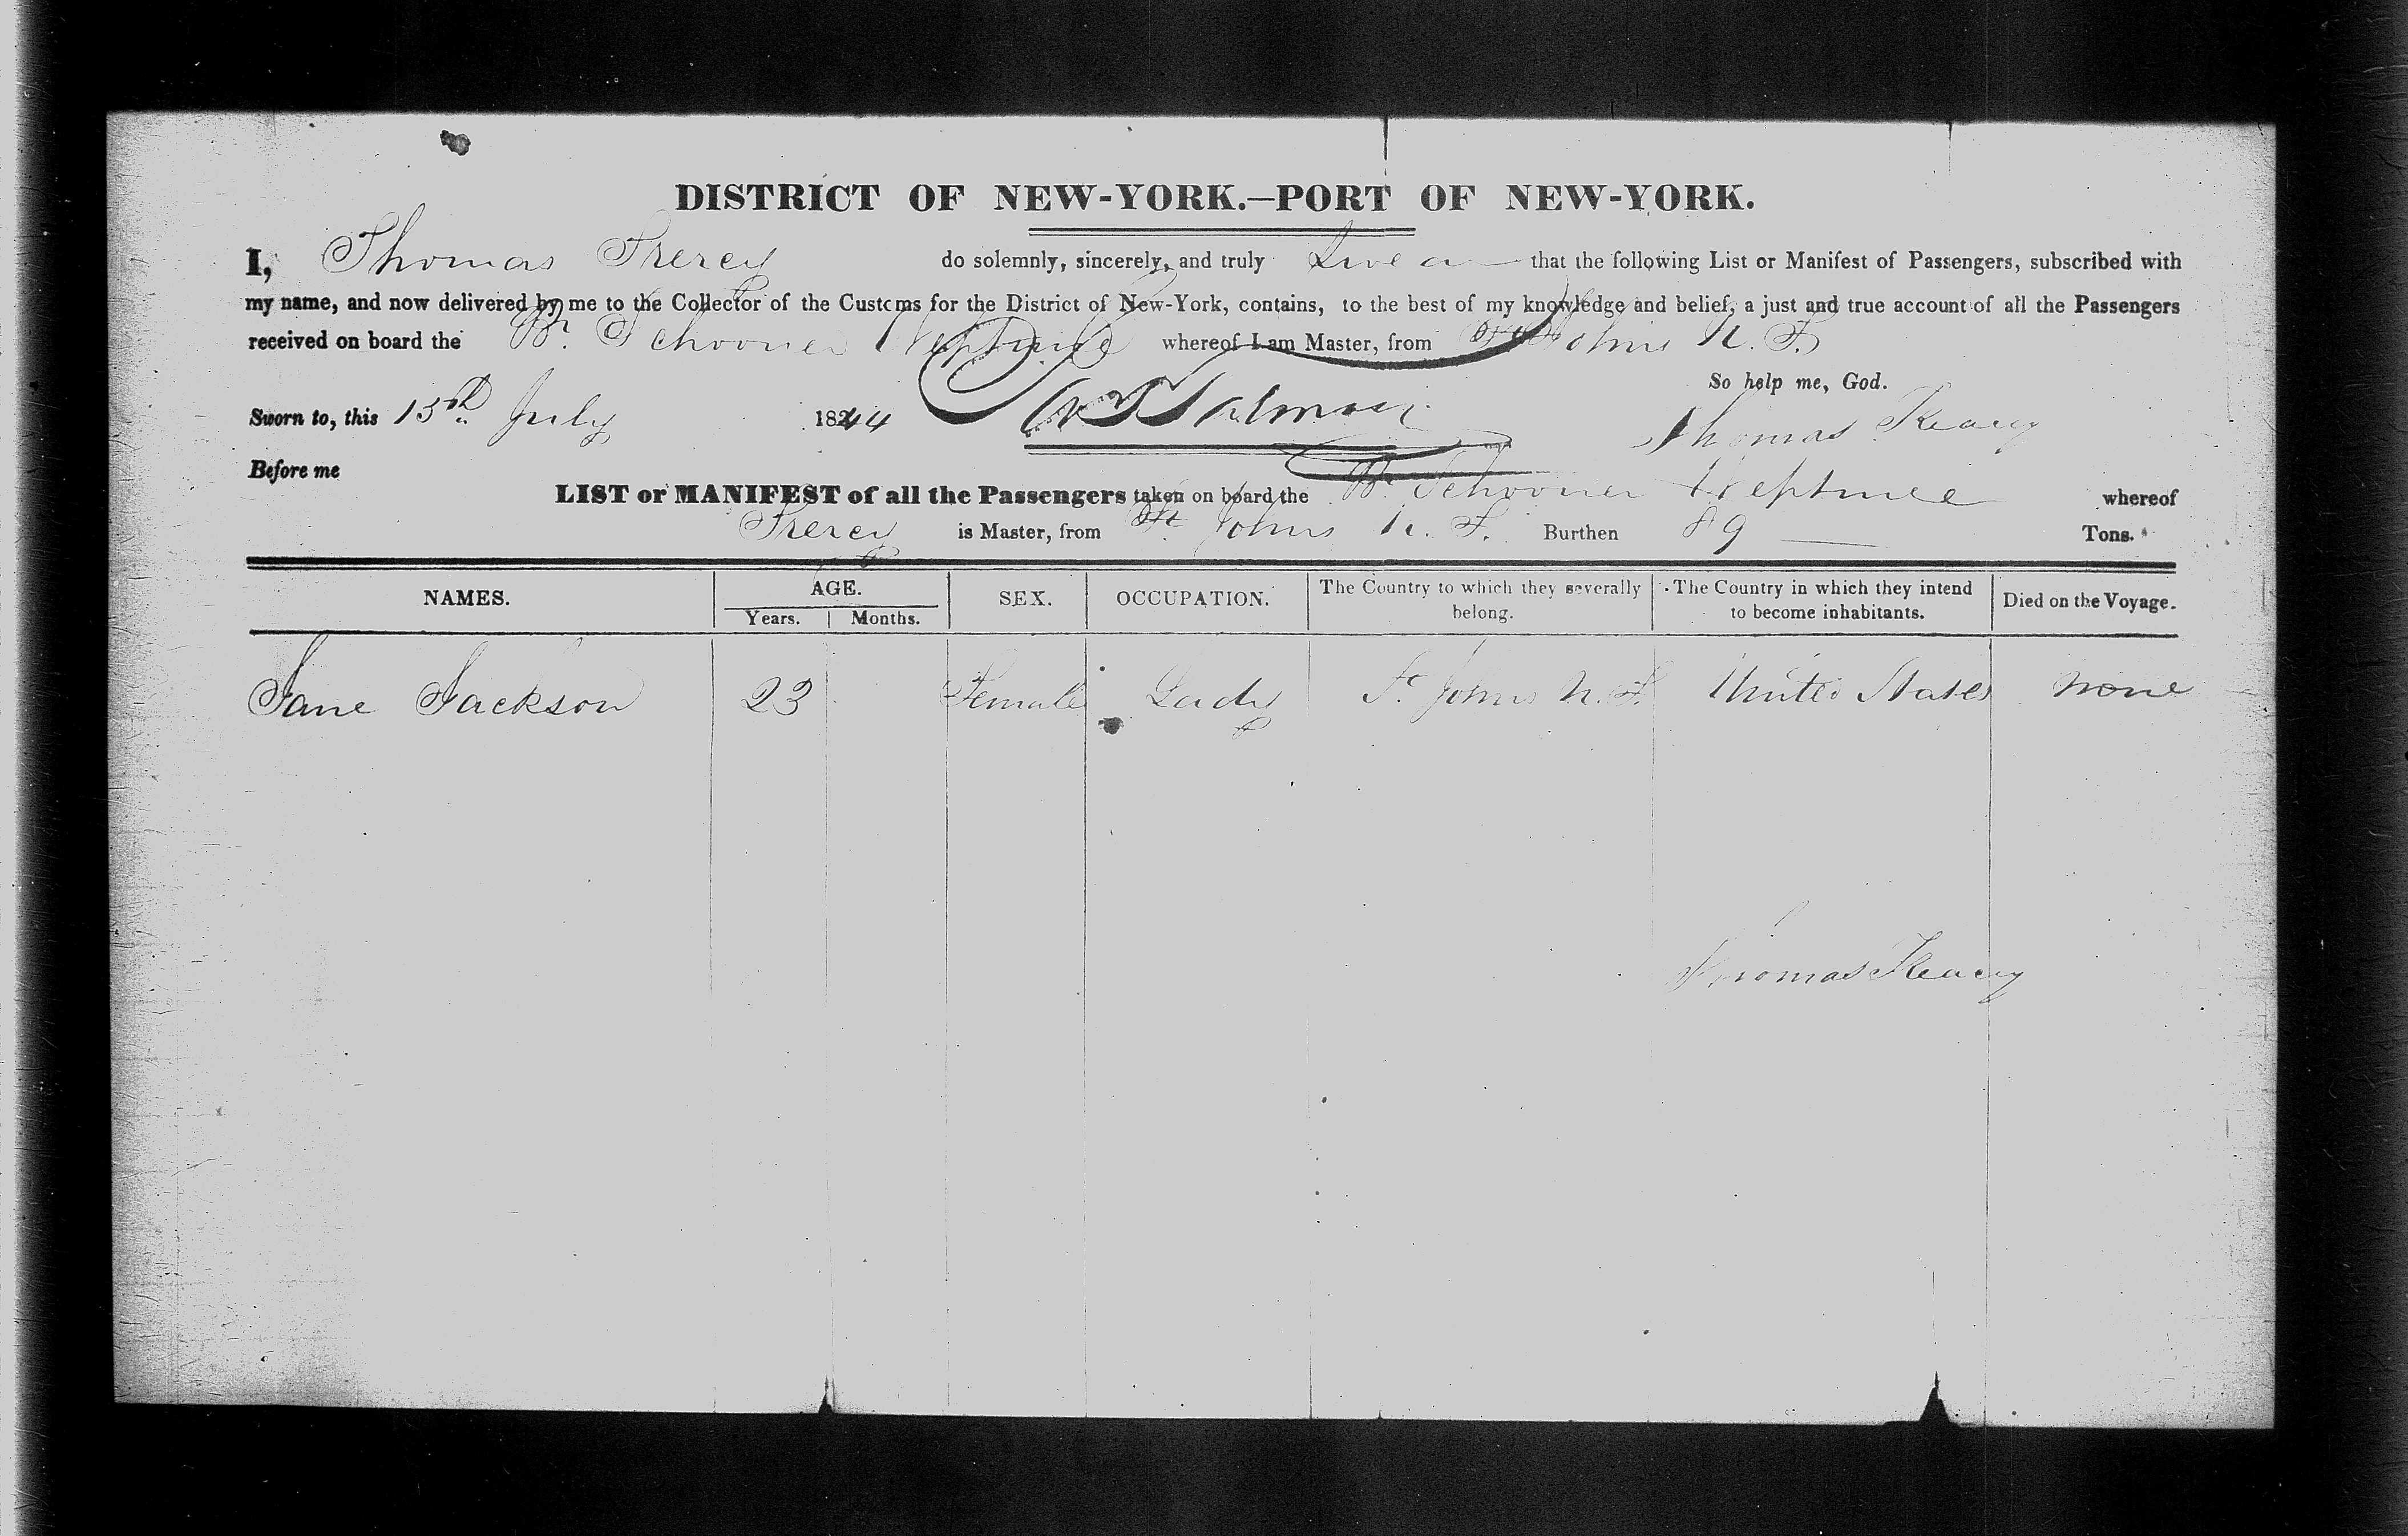 DISTRICT OF NEW-YORK.—PORT OF NEW-YORK.
I, Thomas do solemnly, sincerely, and truly Swear that the following List or Manifest of Passengers, subscribed with
my name, and now delivered by me to the Collector of the Customs for the District of New-York, contains, to the best of my knowledge and belief, a just and true account of all the Passengers
received on board the Br. Schooner Neptune whereof I am Master, from St Johns N. F.
So help me, God.
Sworn to, this 15th July 1844 Thomas
Before me
LIST or MANIFEST of all the Passengers taken on board the Br Schooner Neptune whereof
is Master, from St. Johns N. F. Burthen 89 Tons.
NAMES. AGE. SEX. OCCUPATION. The Country to which they severally belong. The Country in which they intend to become inhabitants. Died on the Voyage.
Years. Months.
Jane Jackson 23 Female Lady St. Johns N. F. United States none
Thomas